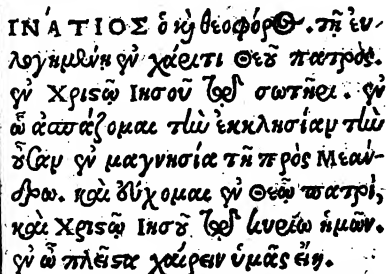 ΙΝΆΤΙΟΣ ὁ κὶ θεοφόρος. τῇ ἐυ-
λογημένῃ ἐν χάριτι Θεοῦ πατρὸς.
ἐν Χριστῷ Ἰησοῦ τῷ σωτῆρι. ἐν
ᾧ ἀσπάζομαι τὴν ἐκκλησίαν τὴν
οὖσαν ἐν μαγνησίᾳ τῇ πρὸς Μεάν-
δρῳ. καὶ ἐύχομαι ἐν Θεῷ πατρὶ,
καὶ Χριστῷ Ἰησοῦ τῷ κυρίῳ ἡμῶν.
ἐν ᾧ πλεῖστα χαίρειν ὑμᾶς εἴη.